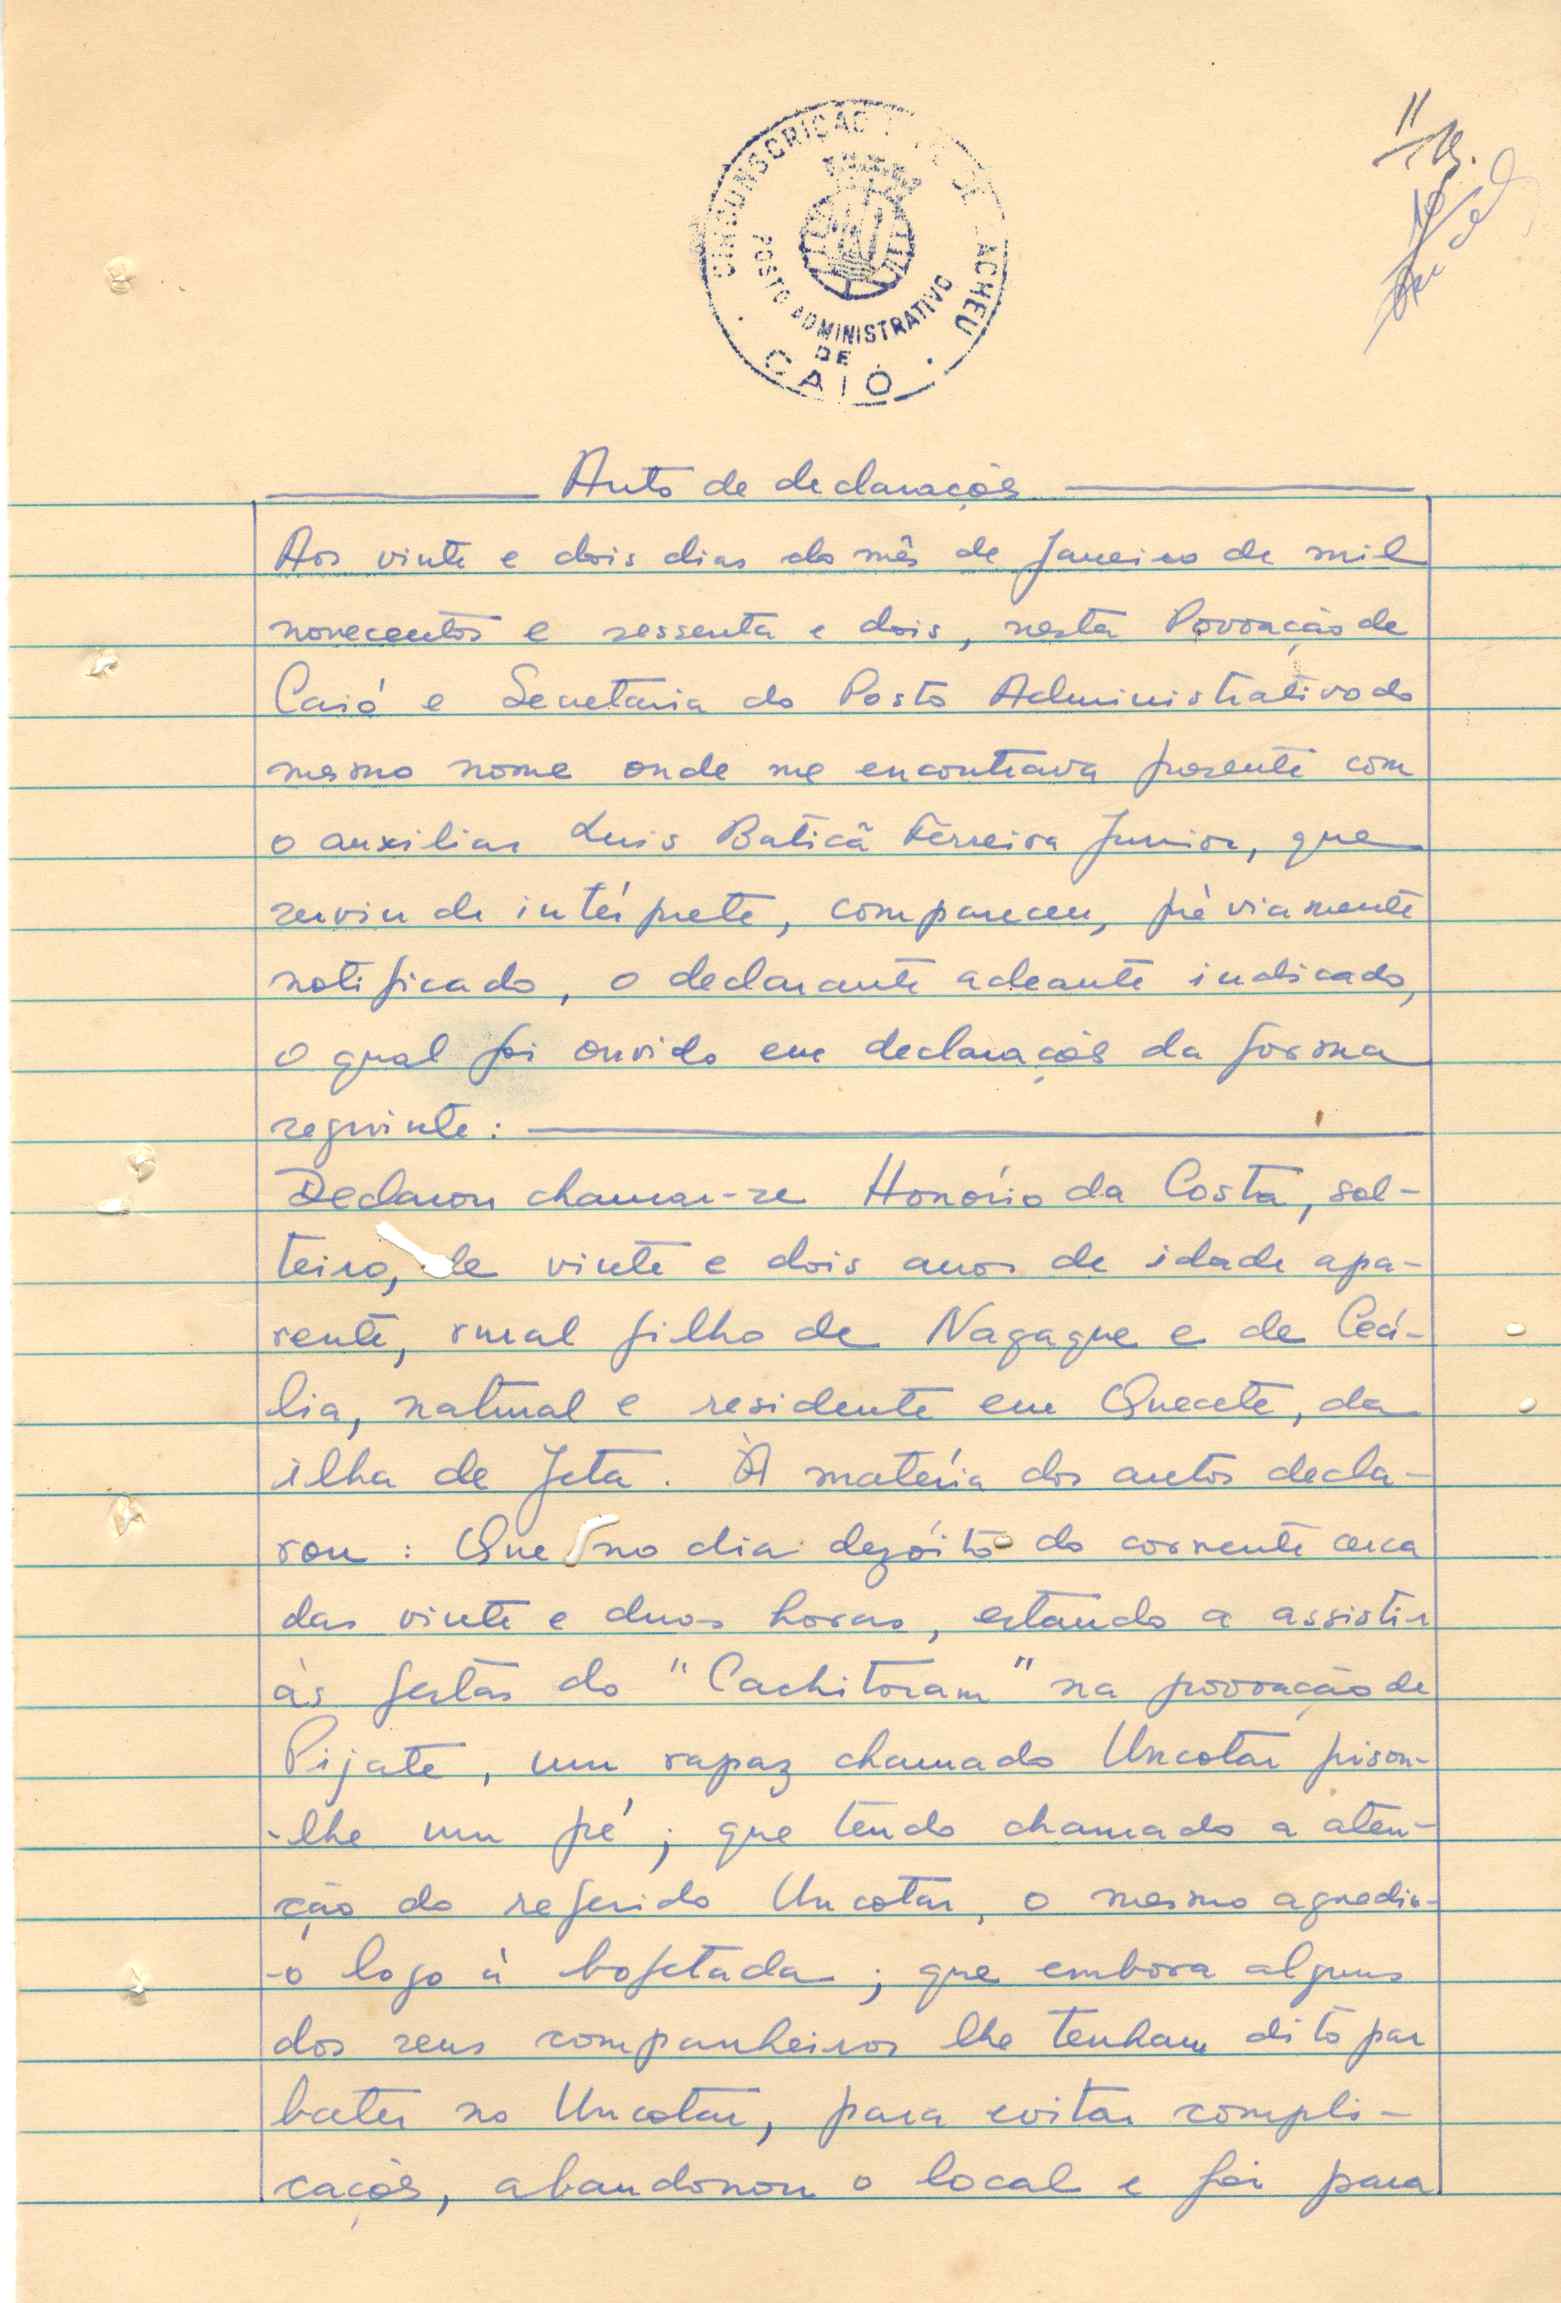 11
CIRCUNSCRIÇÃO DE CACHEU
POSTO ADMINISTRATIVO
DE
CAIÓ
Auto de declarações
Aos vinte e dois dias do mês de Janeiro de mil
novecentos e sessenta e dois, nesta Povoação de
Caió e Secretaria do Posto Administrativo do
mesmo nome onde me encontrava presente com
o auxiliar Luis Baticã Ferreira Junior, que
serviu de intérprete, compareceu, préviamente
notificado, o declarante adeante indicado,
o qual foi ouvido em declarações da forma
seguinte:
Declarou chamar-se Honório da Costa, sol-
teiro, de vinte e dois anos de idade apa-
rente, rural filho de Nagague e de Cecí-
lia, natural e residente em Quecete, da
ilha de Jeta. À matéria dos autos decla-
rou: Que no dia dezóito do corrente cerca
das vinte e duas horas, estando a assistir
às festas do "Cachitoram" na povoação de
Pijate, um rapaz chamado Uncotar pisou-
-lhe um pé; que tendo chamado a aten-
ção do referido Uncotar, o mesmo agrediu-
-o logo à bofetada; que embora alguns
dos seus companheiros lhe tenham dito par
bater no Uncotar, para evitar compli-
cações, abandonou o local e foi para